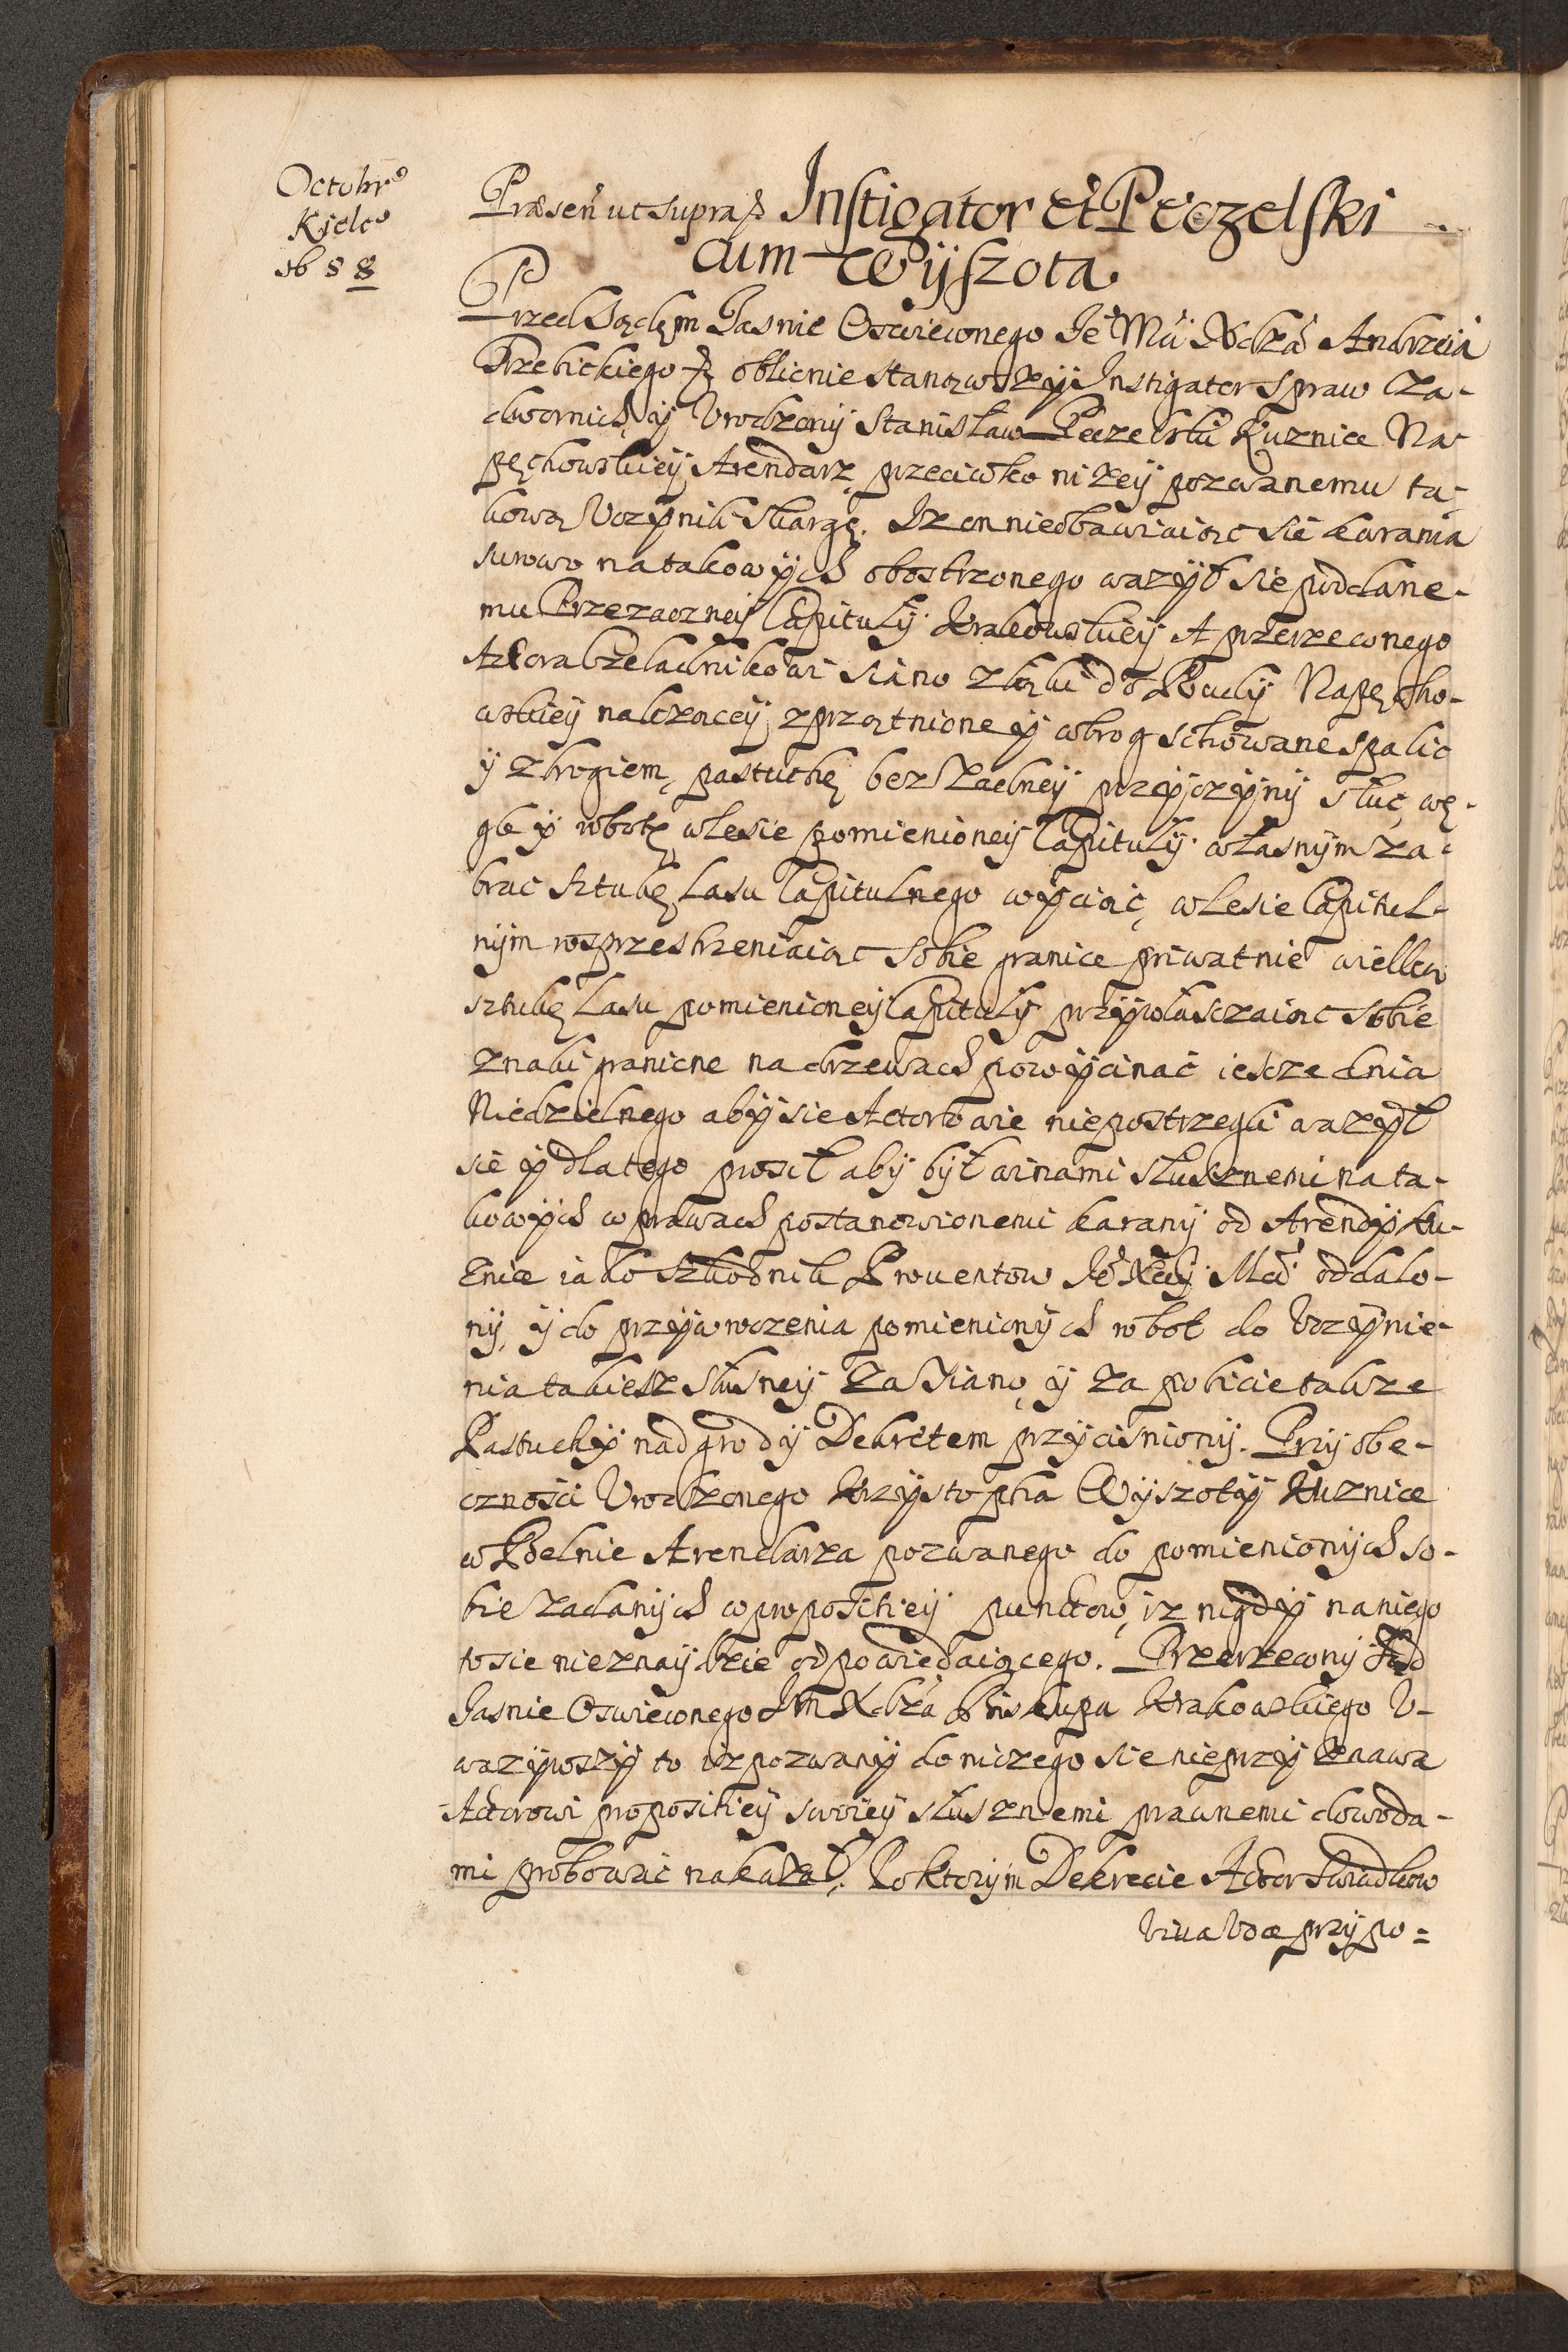 Octobr
Kielc
1658
Præsen ut supra Instigator et Peczelski
cum Wyszota
Przed Sądem Jasnie Oswieconego Je Mci Xdza Andrzeia
Trzebickiego oblicnie stanąwszy Instigator spraw za-
dwornich, y Vrodzony Stanisław Peczelski Kuznice Na-
pęchowskiey Arendarz, przeciwko nizey pozwanemu ta-
kową Vczynili skargę. Iz on nieobawiaiąc sie karania
surowo na takowych obostrzonego wazył sie poddane-
mu Przezaczney Capituły Krakowskiey A przerzeczonego
Aktora Czeladnikowi siano z łąki do Rudy Napęcho-
wskiey nalezącey, zprzątnione y w brog schowane spalic
y z brogiem, pastuchę bez zadney przyczyny stłuc, wę-
gle y robotę w lesie pomienioney Capituły własnym za-
brac sztukę Lasu Capitulnego wyciąć, w Lesie Capitul-
nym rosprzestrzeniaiąc sobie granice priwatnie wielką
sztukę Lasu pomienioney Capituły przywłasczaiąc sobie
znaki granicne na drzewach powycinać iescze dnia
Niedzielnego aby sie Actorowie niepostrzegli wazył
sie y dlatego prosił aby był winami słusznemi na ta-
kowych w prawach postanowionemi karany od Arendy Ku-
znice iako szkodnik Prouentow Je Xcey Mci oddalo-
ny, y do przywroczenia pomienionych robot do Vczynie-
nia takiesz słusney za siano, y za pobicie takze
Pastuchy nadgrody Dekretem przyciśniony. Przy obe-
czności Vrodzonego Krzysztopha Wyszoty Kuznice
w Bdelnie Arendarza pozwanego do pomienionych so-
bie zadanych w propositiey punctow, iz nigdy na niego
to sie nieznaydzie odpowiedaiącego. Przerzeczony Sąd
Jasnie Oswieconego Im Xdza Biskupa Krakowskiego V-
wazywszy to iz pozwany do niczego sie nieprzyznawa
Actorowi propositiey swoiey słusznemi prawnemi dowoda-
mi probować nakazał. Po ktorym Dekrecie Actor Swiadkow
przypo=